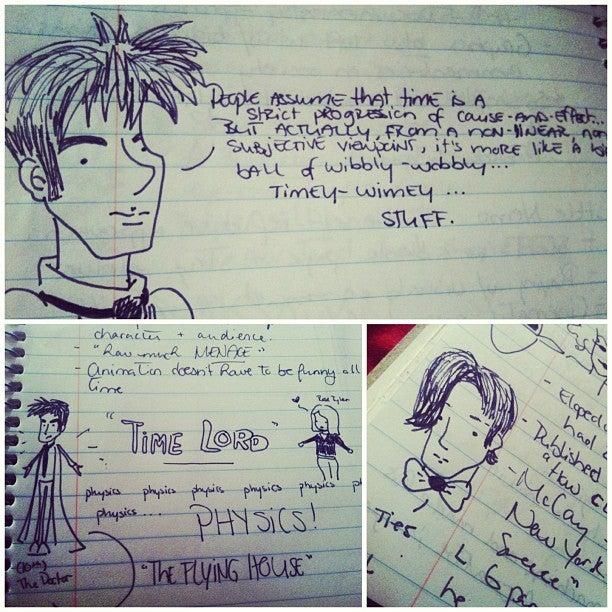 People assume that time is a
strict progression of cause-and-effect...
But actually, from a non-linear non
subjective viewpoint, it's more like a
ball of wibbly-wobbly...
timey-wimey ...
stuff.
character + audience.
- "how much MENACE"
- animation doesn't have to be funny all
time
Rose Tyler
"TIME LORD"
physics physics physics physics physics
physics.... PHYSICS!
(10th)
The Doctor
"THE FLYING HOUSE"
-
had
- Published
a few
- McCay
New York
Ties
L 6
he